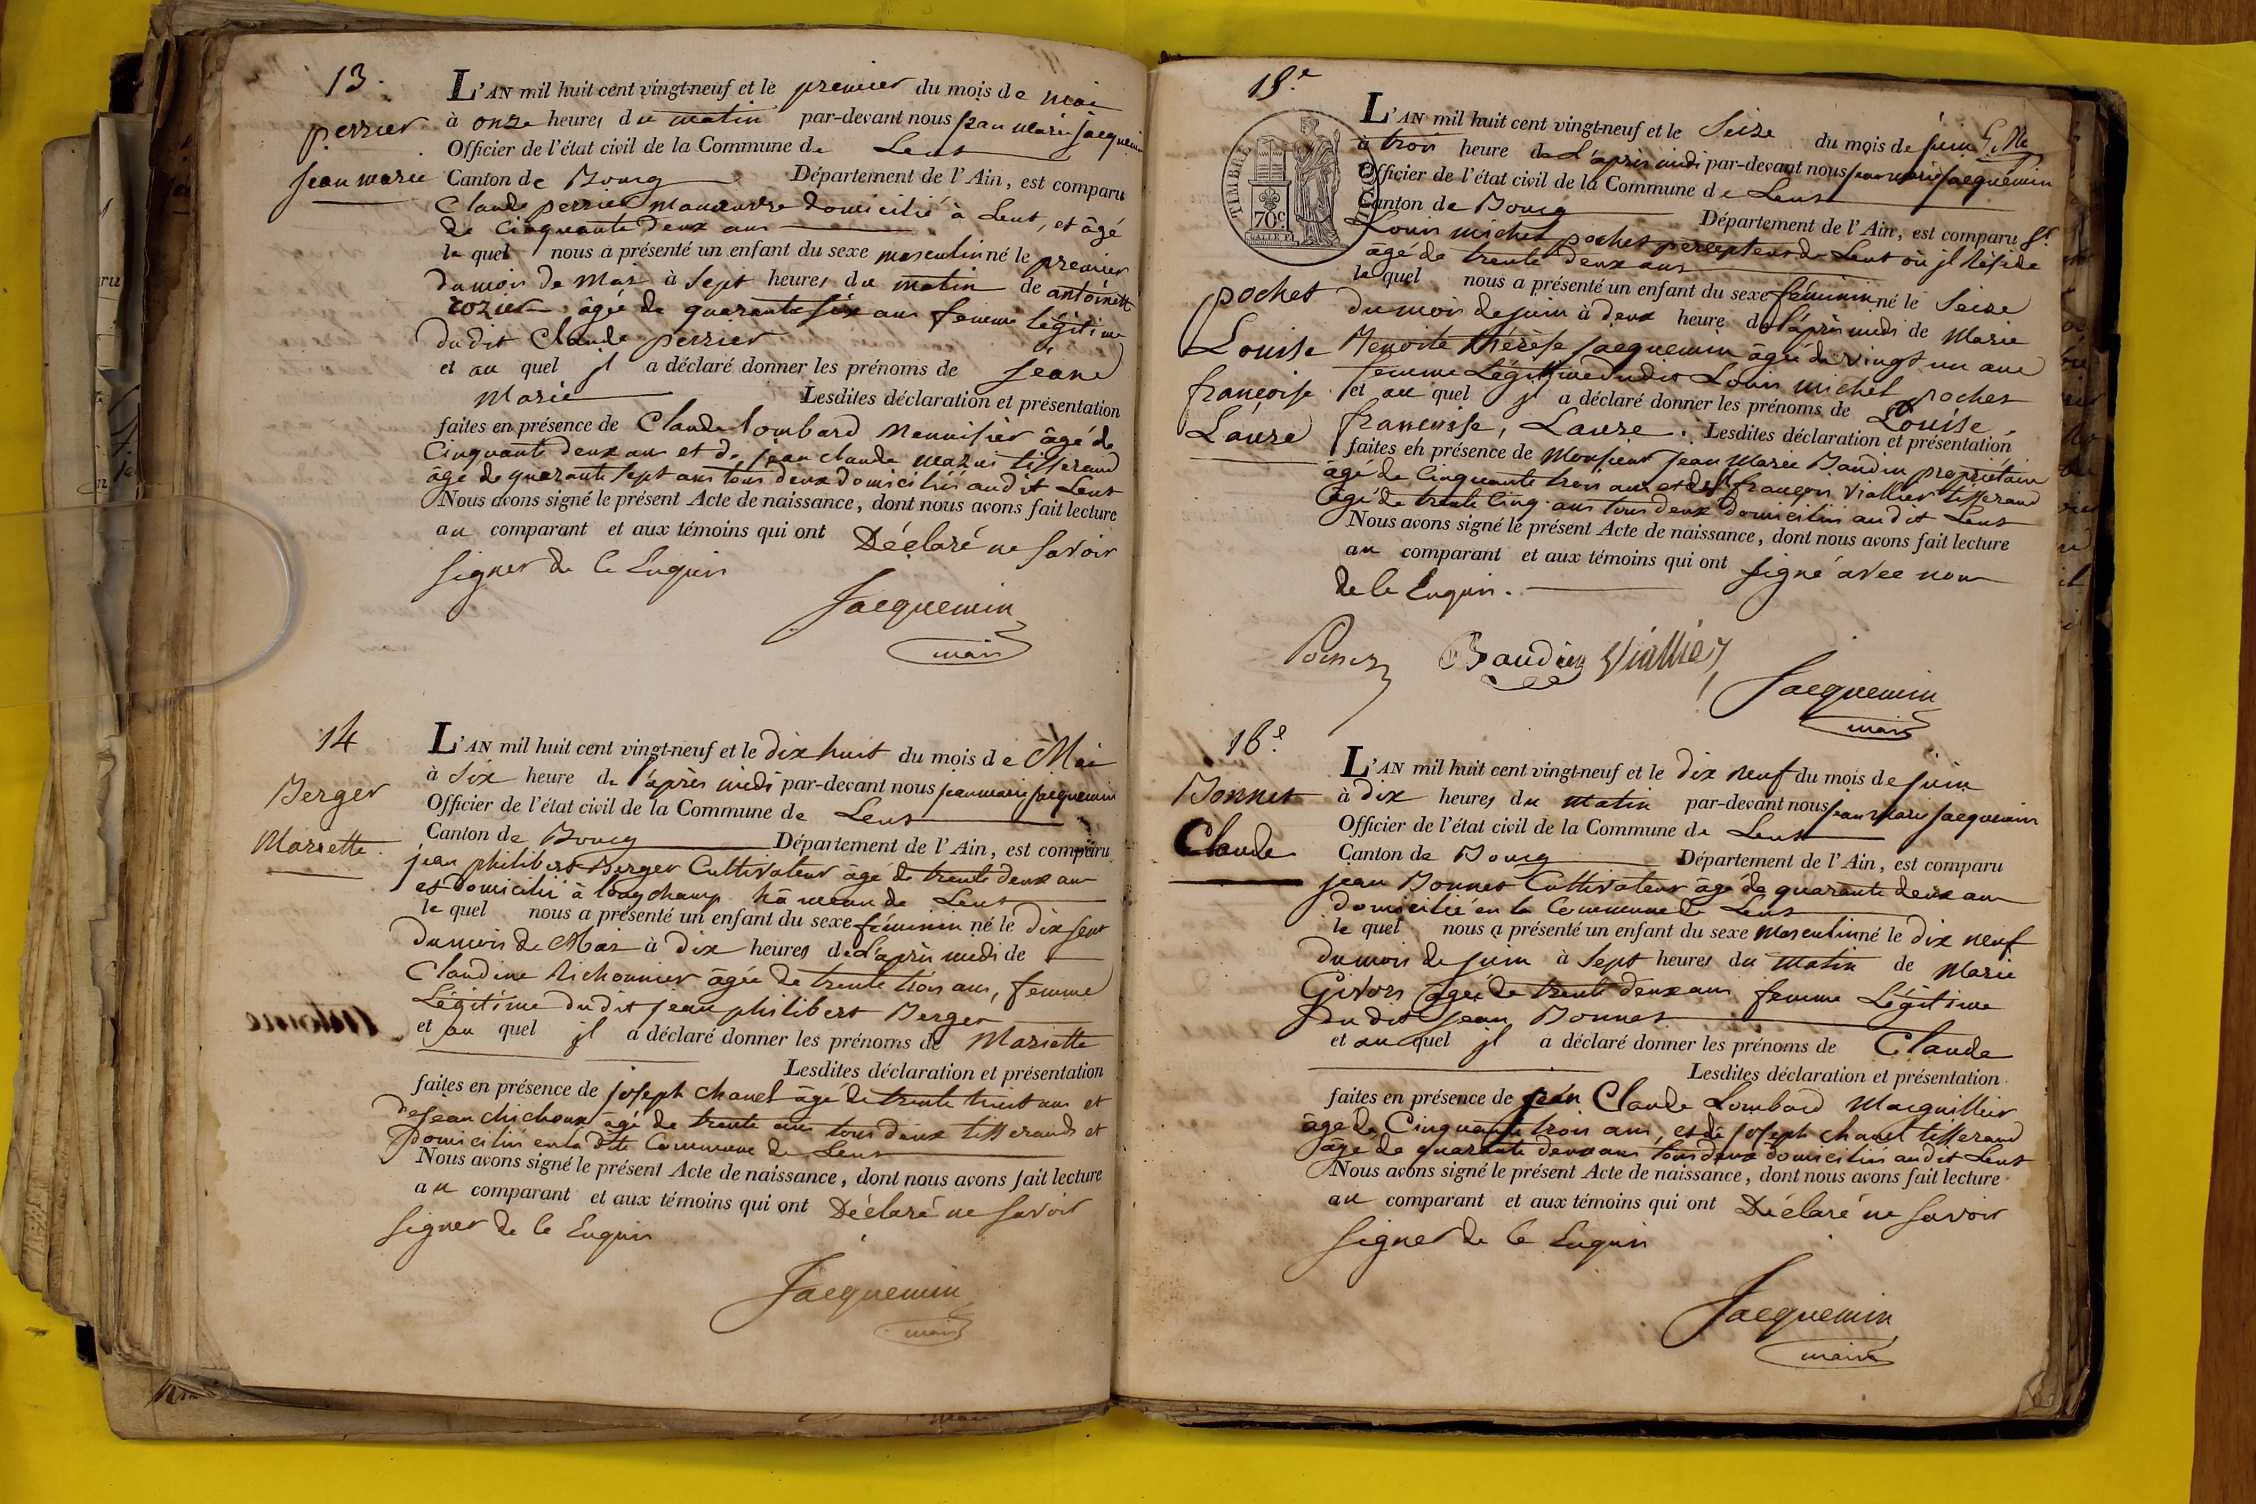 13.
perrier
jean marie
L'AN mil huit cent vingt-neuf et le premier du mois de mai
à onze heures du matin par-devant nous jean marie jacquemin
Officier de l'état civil de la Commune de Lent
Canton de Bourg Département de l'Ain, est comparu
Claude perrier manœuvre domicilié à Lent, et âgé
de cinquante deux ans
le quel nous a présenté un enfant du sexe masculin né le premier
du mois de mai à sept heures du matin de antoinette
rozier âgée de quarante six ans femme légitime
dudit Claude perrier
et au quel il a déclaré donner les prénoms de jean
Marie Lesdites déclaration et présentation
faites en présence de Claude lombard Menuisier âgé de
Cinquante deux ans et de jean claude mazui tisserand
âgé de quarante sept ans tous deux domiciliés audit Lent
Nous avons signé le présent Acte de naissance, dont nous avons fait lecture
au comparant et aux témoins qui ont Déclaré ne savoir
signer de ce Enquis
Jacquemin
maire
14
Berger
Mariette
L'AN mil huit cent vingt-neuf et le dix huit du mois de Mai
à Six heure de l'après midi par-devant nous jean marie jacquemin
Officier de l'état civil de la Commune de Lent
Canton de Bourg Département de l'Ain, est comparu
jean philibert Berger Cultivateur âgé de trente deux ans
et domicilié à longchamp hameau de Lent
le quel nous a présenté un enfant du sexe féminin né le dix sept
du mois de Mai à dix heures de L'après midi de
Claudine Richonnier âgée de trente trois ans, femme
Légitime dudit jean philibert Berger
et au quel il a déclaré donner les prénoms de Mariette
Lesdites déclaration et présentation
faites en présence de joseph chanel âgé de trente huit ans et
de jean chichoux âgé de trente ans tous deux tisserands et
domiciliés en la dite Commune de Lent
Nous avons signé le présent Acte de naissance, dont nous avons fait lecture
au comparant et aux témoins qui ont Déclaré ne savoir
signer de ce Enquis
Jacquemin
maire
15.e
TIMBRE ROYAL
70c
pochet
Louise
françoise
Laure
L'AN mil huit cent vingt-neuf et le Seize du mois de juin
à trois heure de L'après midi par-devant nous jean marie jacquemin
Officier de l'état civil de la Commune de Lent
Canton de Bourg Département de l'Ain, est comparu Sr
Louis michel pochet percepteur de Lent où il Réside
âgé de trente deux ans
le quel nous a présenté un enfant du sexe féminin né le Seize
du mois de juin à deux heure de l'après midi de Marie
Benoite thérèse jacquemin âgée de vingt un ans
femme Légitime dudit Louis michel pochet
et au quel il a déclaré donner les prénoms de Louise,
françoise, Laure. Lesdites déclaration et présentation
faites en présence de Monsieur jean Marie Baudin propriétaire
âgé de Cinquante trois ans et de françois Viallier tisserand
âgé de trente Cinq ans tous deux domiciliés audit Lent
Nous avons signé le présent Acte de naissance, dont nous avons fait lecture
au comparant et aux témoins qui ont signé avec nous
de ce Enquis.
Pochet Baudin Viallier
Jacquemin
maire
16.e
Bonnet
Claude
L'AN mil huit cent vingt-neuf et le dix neuf du mois de juin
à dix heures du matin par-devant nous jean marie jacquemin
Officier de l'état civil de la Commune de Lent
Canton de Bourg Département de l'Ain, est comparu
jean Bonnet Cultivateur âgé de quarante deux ans
domicilié en la Commune de Lent
le quel nous a présenté un enfant du sexe masculin né le dix neuf
du mois de juin à Sept heures du matin de Marie
Givors âgée de trente deux ans femme Légitime
du dit jean Bonnet
et au quel il a déclaré donner les prénoms de Claude
Lesdites déclaration et présentation
faites en présence de jean Claude Lombard Marguillier
âgé de Cinquante trois ans, et de joseph chanel tisserand
âgé de quarante deux ans tous deux domiciliés audit Lent
Nous avons signé le présent Acte de naissance, dont nous avons fait lecture
au comparant et aux témoins qui ont Déclaré ne savoir
signer de ce Enquis
Jacquemin
maire